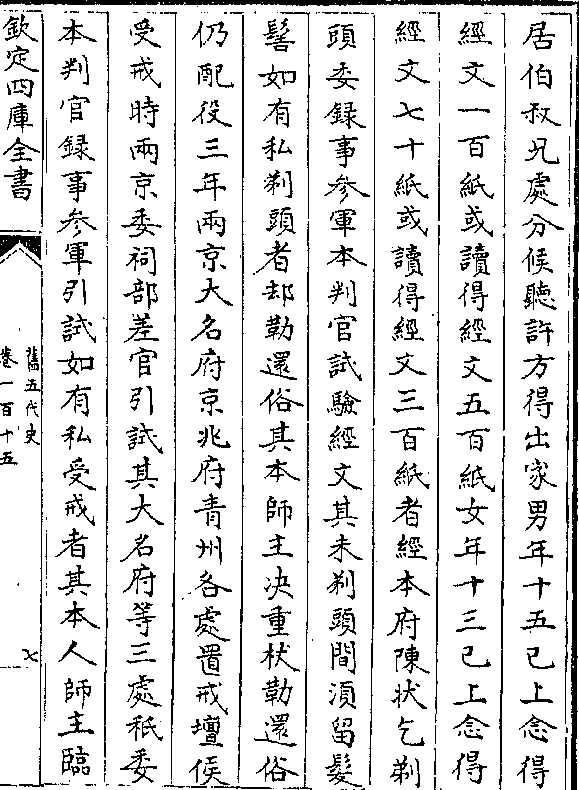 居伯叔兄處分候聽許方得出家男年十五已上念得
經文一百紙或讀得經文五百紙女年十三已上念得
經文七十紙或讀得經文三百紙者經本府陳狀乞剃
頭委録事參軍本判官試驗經文其未剃頭間須留髮
髻如有私剃頭者却勒還俗其本師主决重杖勒還俗
仍配役三年兩京大名府京兆府青州各處置戒壇候
受戒時兩京委祠部差官引試其大名府等三處秖委
本判官録事參軍引試如有私受戒者其本人師主臨
欽定四庫全書
舊五代史
卷一百十五
七